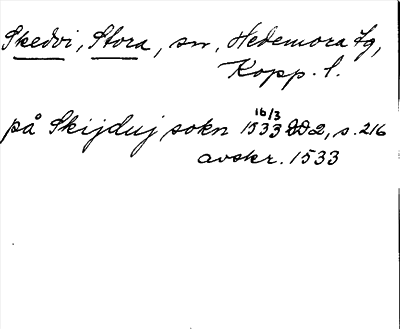 Skedvi, Stora, sn, Hedemora tg,
Kopp. l.
16/3
på Skijduj sokn 1533 DD 2, s. 216
avskr. 1533